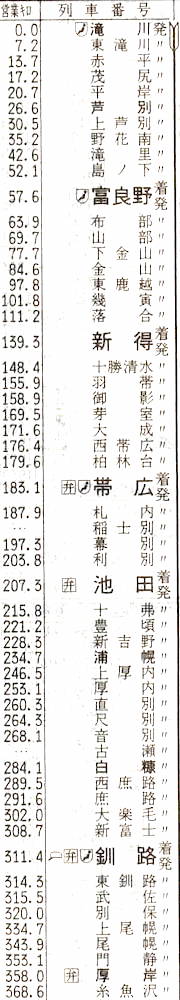 営業キロ 列車番号
0.0 滝川発
7.2 東滝川〃
13.7 赤平〃
17.2 茂尻〃
20.7 平岸〃
26.6 芦別〃
30.5 上芦別〃
35.2 野花南〃
42.6 滝里〃
52.1 島ノ下〃
57.6 富良野着発
63.9 布部〃
69.7 山部〃
77.7 下金山〃
84.6 金山〃
97.8 東鹿越〃
101.8 幾寅〃
111.2 落合〃
139.3 新得着発
148.4 十勝清水〃
155.9 羽帯〃
158.9 御影〃
169.5 芽室〃
171.6 大成〃
176.4 西帯広〃
179.6 柏林台〃
183.1 弁 帯広着発
187.9 札内〃
… 稲士別〃
197.3 幕別〃
203.8 利別〃
207.3 弁 池田着発
215.8 十弗〃
221.2 豊頃〃
228.3 新吉野〃
234.7 浦幌〃
246.5 上厚内〃
253.1 厚内〃
260.3 直別〃
264.3 尺別〃
268.1 音別〃
… 古瀬〃
284.1 白糠〃
289.5 西庶路〃
291.6 庶路〃
302.0 大楽毛〃
308.7 新富士〃
311.4 弁 釧路着発
314.3 東釧路〃
315.5 武佐〃
320.0 別保〃
334.7 上尾幌〃
343.9 尾幌〃
353.1 門静〃
358.0 弁 厚岸〃
368.6 糸魚沢〃